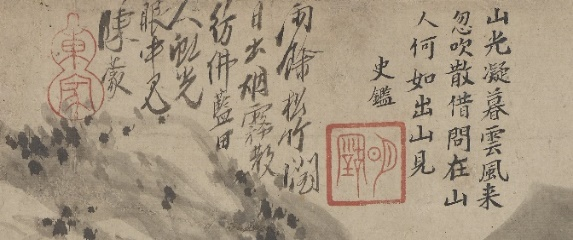 山光凝暮雲風来
忽吹散借問在山
人何如出山見
史鑑
雨餘松竹潤
日出烟霧散
彷彿藍田
人虹光
眼中見
陳蒙